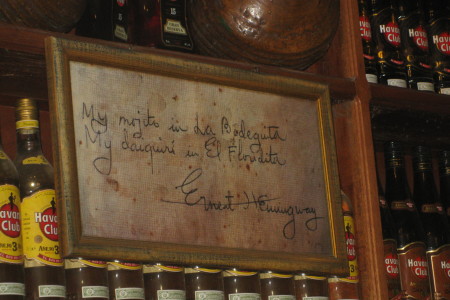 My mojito in La Bodeguita
My daiquiri in El Floridita
Ernest Hemingway
Havana Club
Havana Club
Havana Club
Havana Club
Havana Club
Havana Club
Havana Club